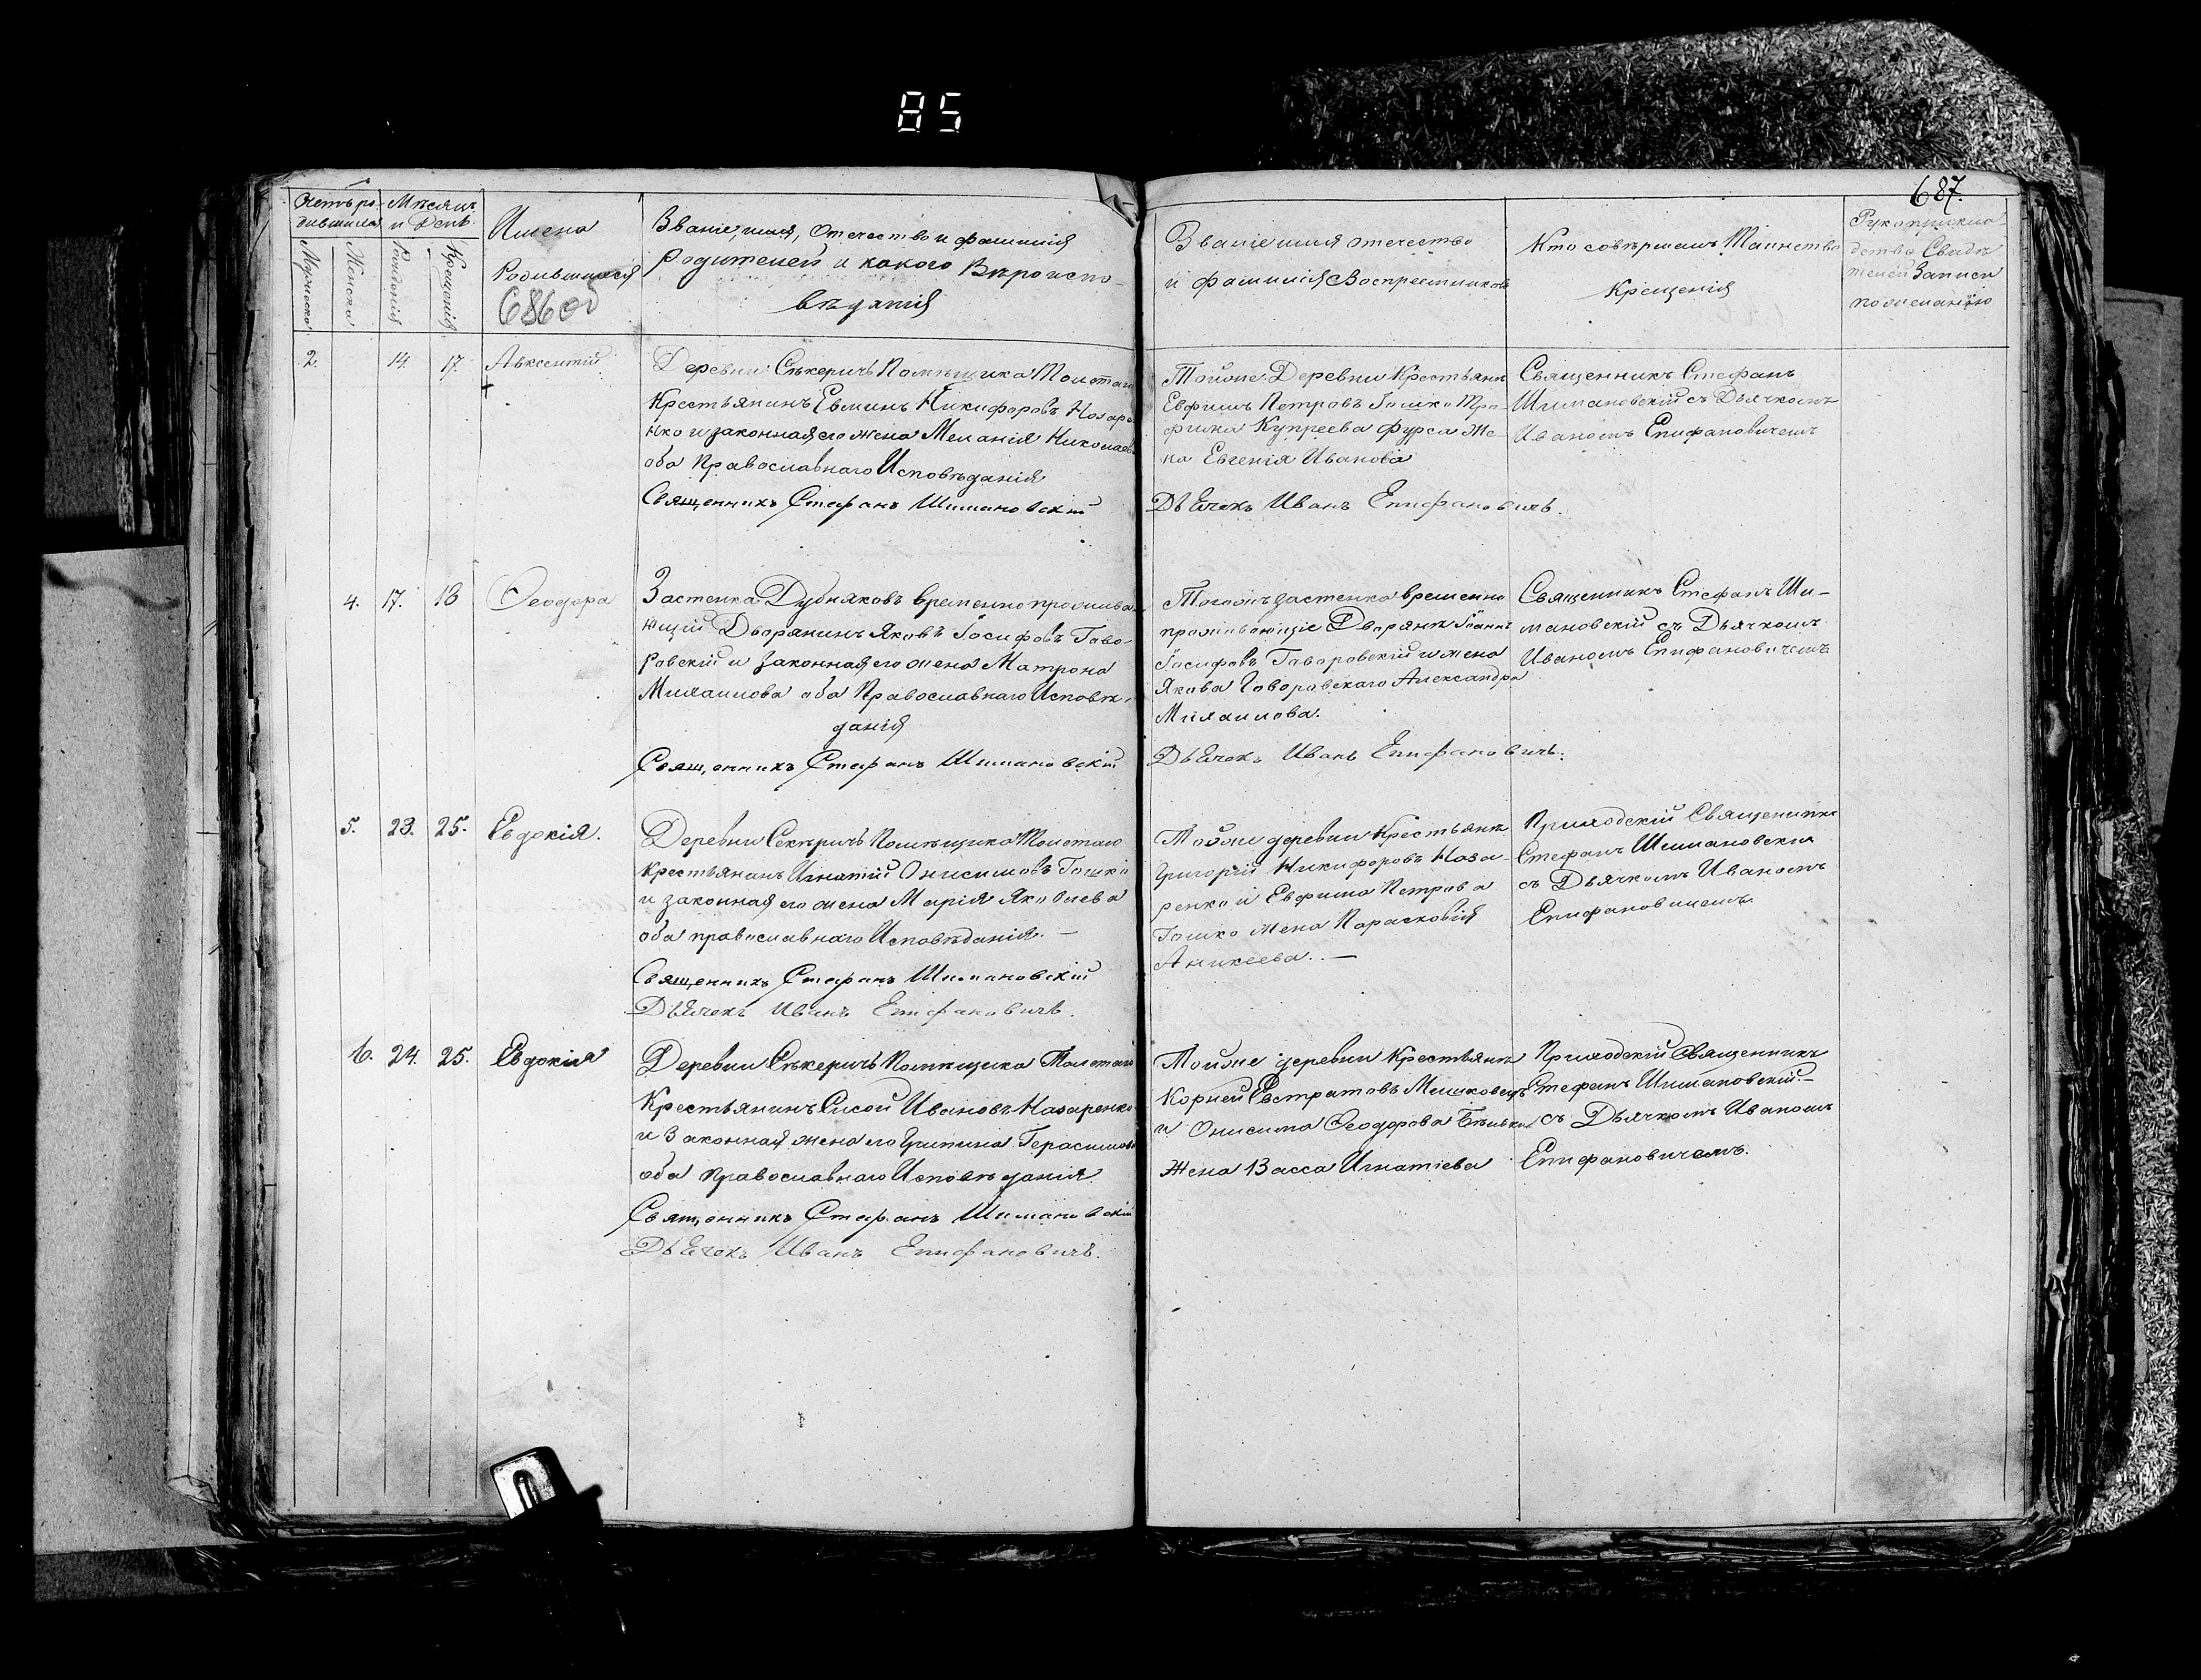 85
687.
Счетъ ро-
дившихся
Мѣсяцъ
и День.
Мужеска
Женска
Рожденія
Крещенія
Имена
Родившихся
686об
Званіе, имя, Отечество и фамилія
Родителей и какого Вѣроиспо-
вѣданія
Званіе имя отечество
и фамилія Воспреемниковъ
Кто совѣршалъ Таинство
Крещенія
Рукоприкла-
дство Свидѣ
телей Записи
пожеланію
2. 14. 17. Авксентій
Деревни Сѣкеричъ Помѣщика Толстаго
Крестьянинъ Евминъ Никифоровъ Назаре
нко и законная его жена Меланія Николаева
оба Православнаго Исповѣданія
Священникъ Стефанъ Шимановскій
Тойже Деревни Крестьяне
Евфимъ Петровъ Гошко Тро-
фима Купреева Фурса Же-
на Евгенія Иванова
Дьячокъ Иванъ Епифановичъ.
Священникъ Стефанъ
Шимановскій съ Дьячкомъ
Иваномъ Епифановичемъ
4. 17. 18 Ѳеодора
Застенка Дубняковъ временно прожива-
ющій Дворянинъ Яковъ Іосифовъ Гаво-
ровскій и Законная его жена Матрона
Михаилова оба Православнаго Исповѣ-
данія
Священникъ Стефанъ Шимановскій
Тогожъ застенка временно
проживающіе Дворяне Іоаннъ
Іосифовъ Гаворовскій и жена
Якова Говоровскаго Александра
Михаилова.
Дьячокъ Иванъ Епифановичъ.
Священникъ Стефанъ Ши-
мановскій съ Дьячкомъ
Иваномъ Епифановичемъ
5. 23. 25. Евдокія.
Деревни Секѣричъ Помѣщика Толстаго
Крестьянинъ Игнатій Онисимовъ Гошко
и законная его жена Марія Яковлева
оба православнаго Исповѣданія. —
Священникъ Стефанъ Шимановскій
Дьячокъ Иванъ Епифановичъ.
Тойже деревни Крестьяне
Григорій Никифоровъ Наза-
ренко и Евфима Петрова
Гошко жена Парасковія
Аникеева. —
Приходскій Священникъ
Стефанъ Шимановскій
съ Дьячкомъ Иваномъ
Епифановичемъ
6. 24. 25. Евдокія
Деревни Сѣкеричъ Помѣщика Толстаго
Крестьянинъ Сисой Ивановъ Назаренко
и Законная жена его Грипина Герасимова
оба Православнаго Исповѣданія
Священникъ Стефанъ Шимановскій
Дьячокъ Иванъ Епифановичъ.
Тойже деревни Крестьяне
Корней Евстратовъ Мишковецъ
и Онисима Ѳеодорова
Жена Васса Игнатіева
Приходскій Священникъ
Стефанъ Шимановскій. —
съ Дьячкомъ Иваномъ
Епифановичемъ.